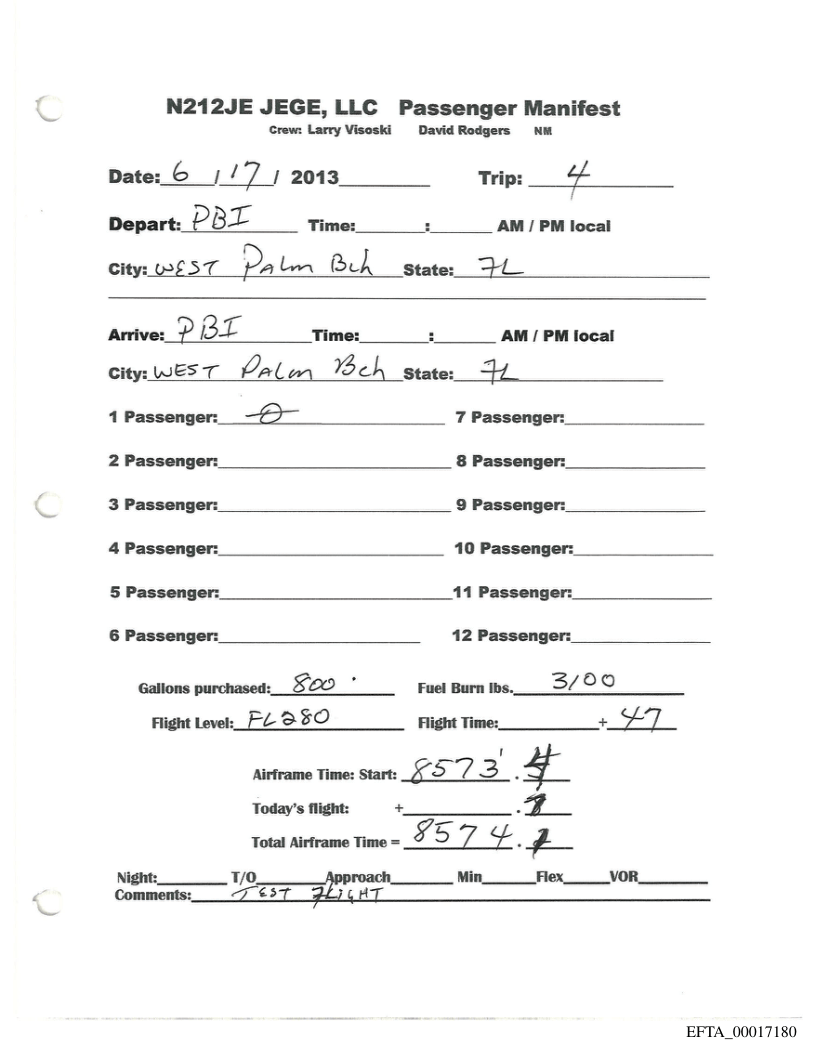 N212JE JEGE, LLC Passenger Manifest
Crew: Larry Visoski David Rodgers NM
Date: 6 / 17 / 2013 Trip: 4
Depart: PBI Time: : AM / PM local
City: WEST Palm Bch State: FL
Arrive: PBI Time: : AM / PM local
City: WEST PALm Bch State: FL
1 Passenger: 0 7 Passenger:
2 Passenger: 8 Passenger:
3 Passenger: 9 Passenger:
4 Passenger: 10 Passenger:
5 Passenger: 11 Passenger:
6 Passenger: 12 Passenger:
Gallons purchased: 800 Fuel Burn lbs. 3100
Flight Level: FL280 Flight Time: + 47
Airframe Time: Start: 8573.
Today's flight: + .
Total Airframe Time = 8574.
Night: T/O Approach Min Flex VOR
Comments: TEST FLIGHT
EFTA_00017180